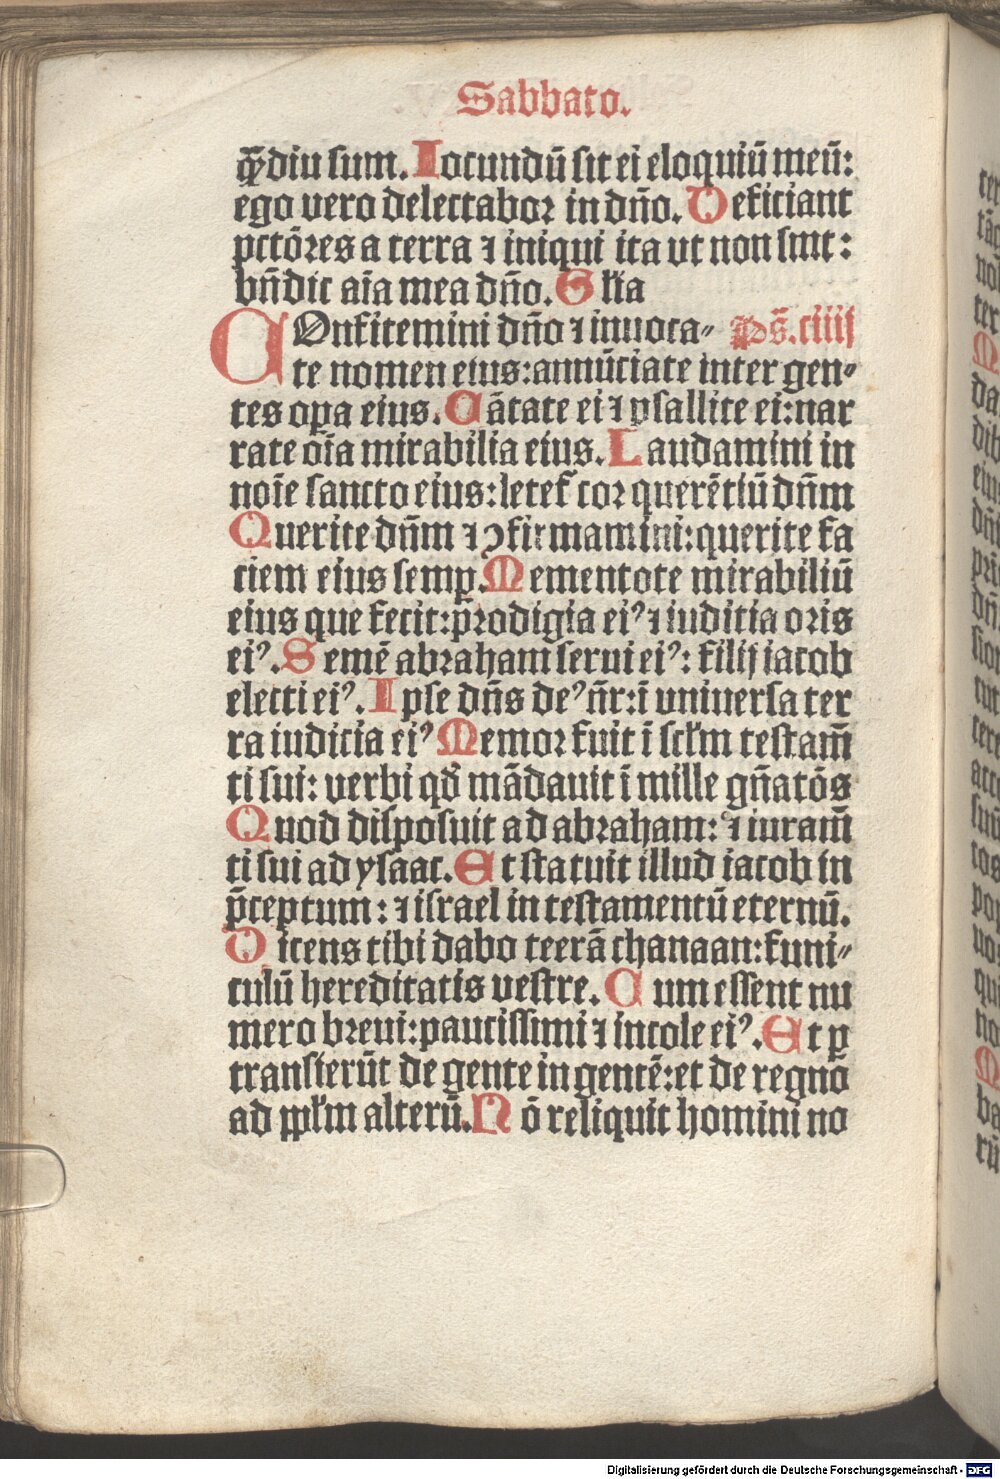 Sabbato.
q̄ꝫdiu sum. Iocundū sit ei eloquiū meū:
ego vero delectaboꝛ in dn̄o. Deficiant
pctōꝛes a terra ⁊ iniqui ita ut non sint:
bn̄dic aīa mea dn̄o. Gl̄ia
COnfitemini dn̄o ⁊ inuoca⸗ Ps̄. ciiij
te nomen eius: annūciate inter gen⸗
tes oꝑa eius. Cātate ei ⁊ psallite ei: nar
rate oīa mirabilia eius. Laudamini in
noīe sancto eius: letet̄ coꝛ querētiū dn̄m
Querite dn̄m ⁊ ꝯfirmamini: querite fa
ciem eius semꝑ. Mementote mirabiliū
eius que fecit: p̄ꝛodigia eiꝰ ⁊ iuditia oꝛis
eiꝰ. Semē abꝛaham serui eiꝰ: filij iacob
electi eiꝰ. Ipse dn̄s deꝰ nr̄: ī uniuersa ter
ra iudicia eiꝰ Memoꝛ fuit ī scl̄m testam̄
ti sui: verbi qd̄ mādauit ī mille gn̄atōs
Quod disposuit ad abꝛaham: ⁊ iuram̄
ti sui ad ysaac. Et statuit illud iacob in
p̄ceptum: ⁊ israel in testamentū eternū.
Dicens tibi dabo teerā chanaan: funi⸗
culū hereditatis vestre. Cum essent nu
mero bꝛeui: paucissimi ⁊ incole eiꝰ. Et ꝑ
transierūt de gente in gentē: et de regno
ad ppl̄m alterū. Nō reliquit homini no
Digitalisierung gefördert durch die Deutsche Forschungsgemeinschaft - DFG